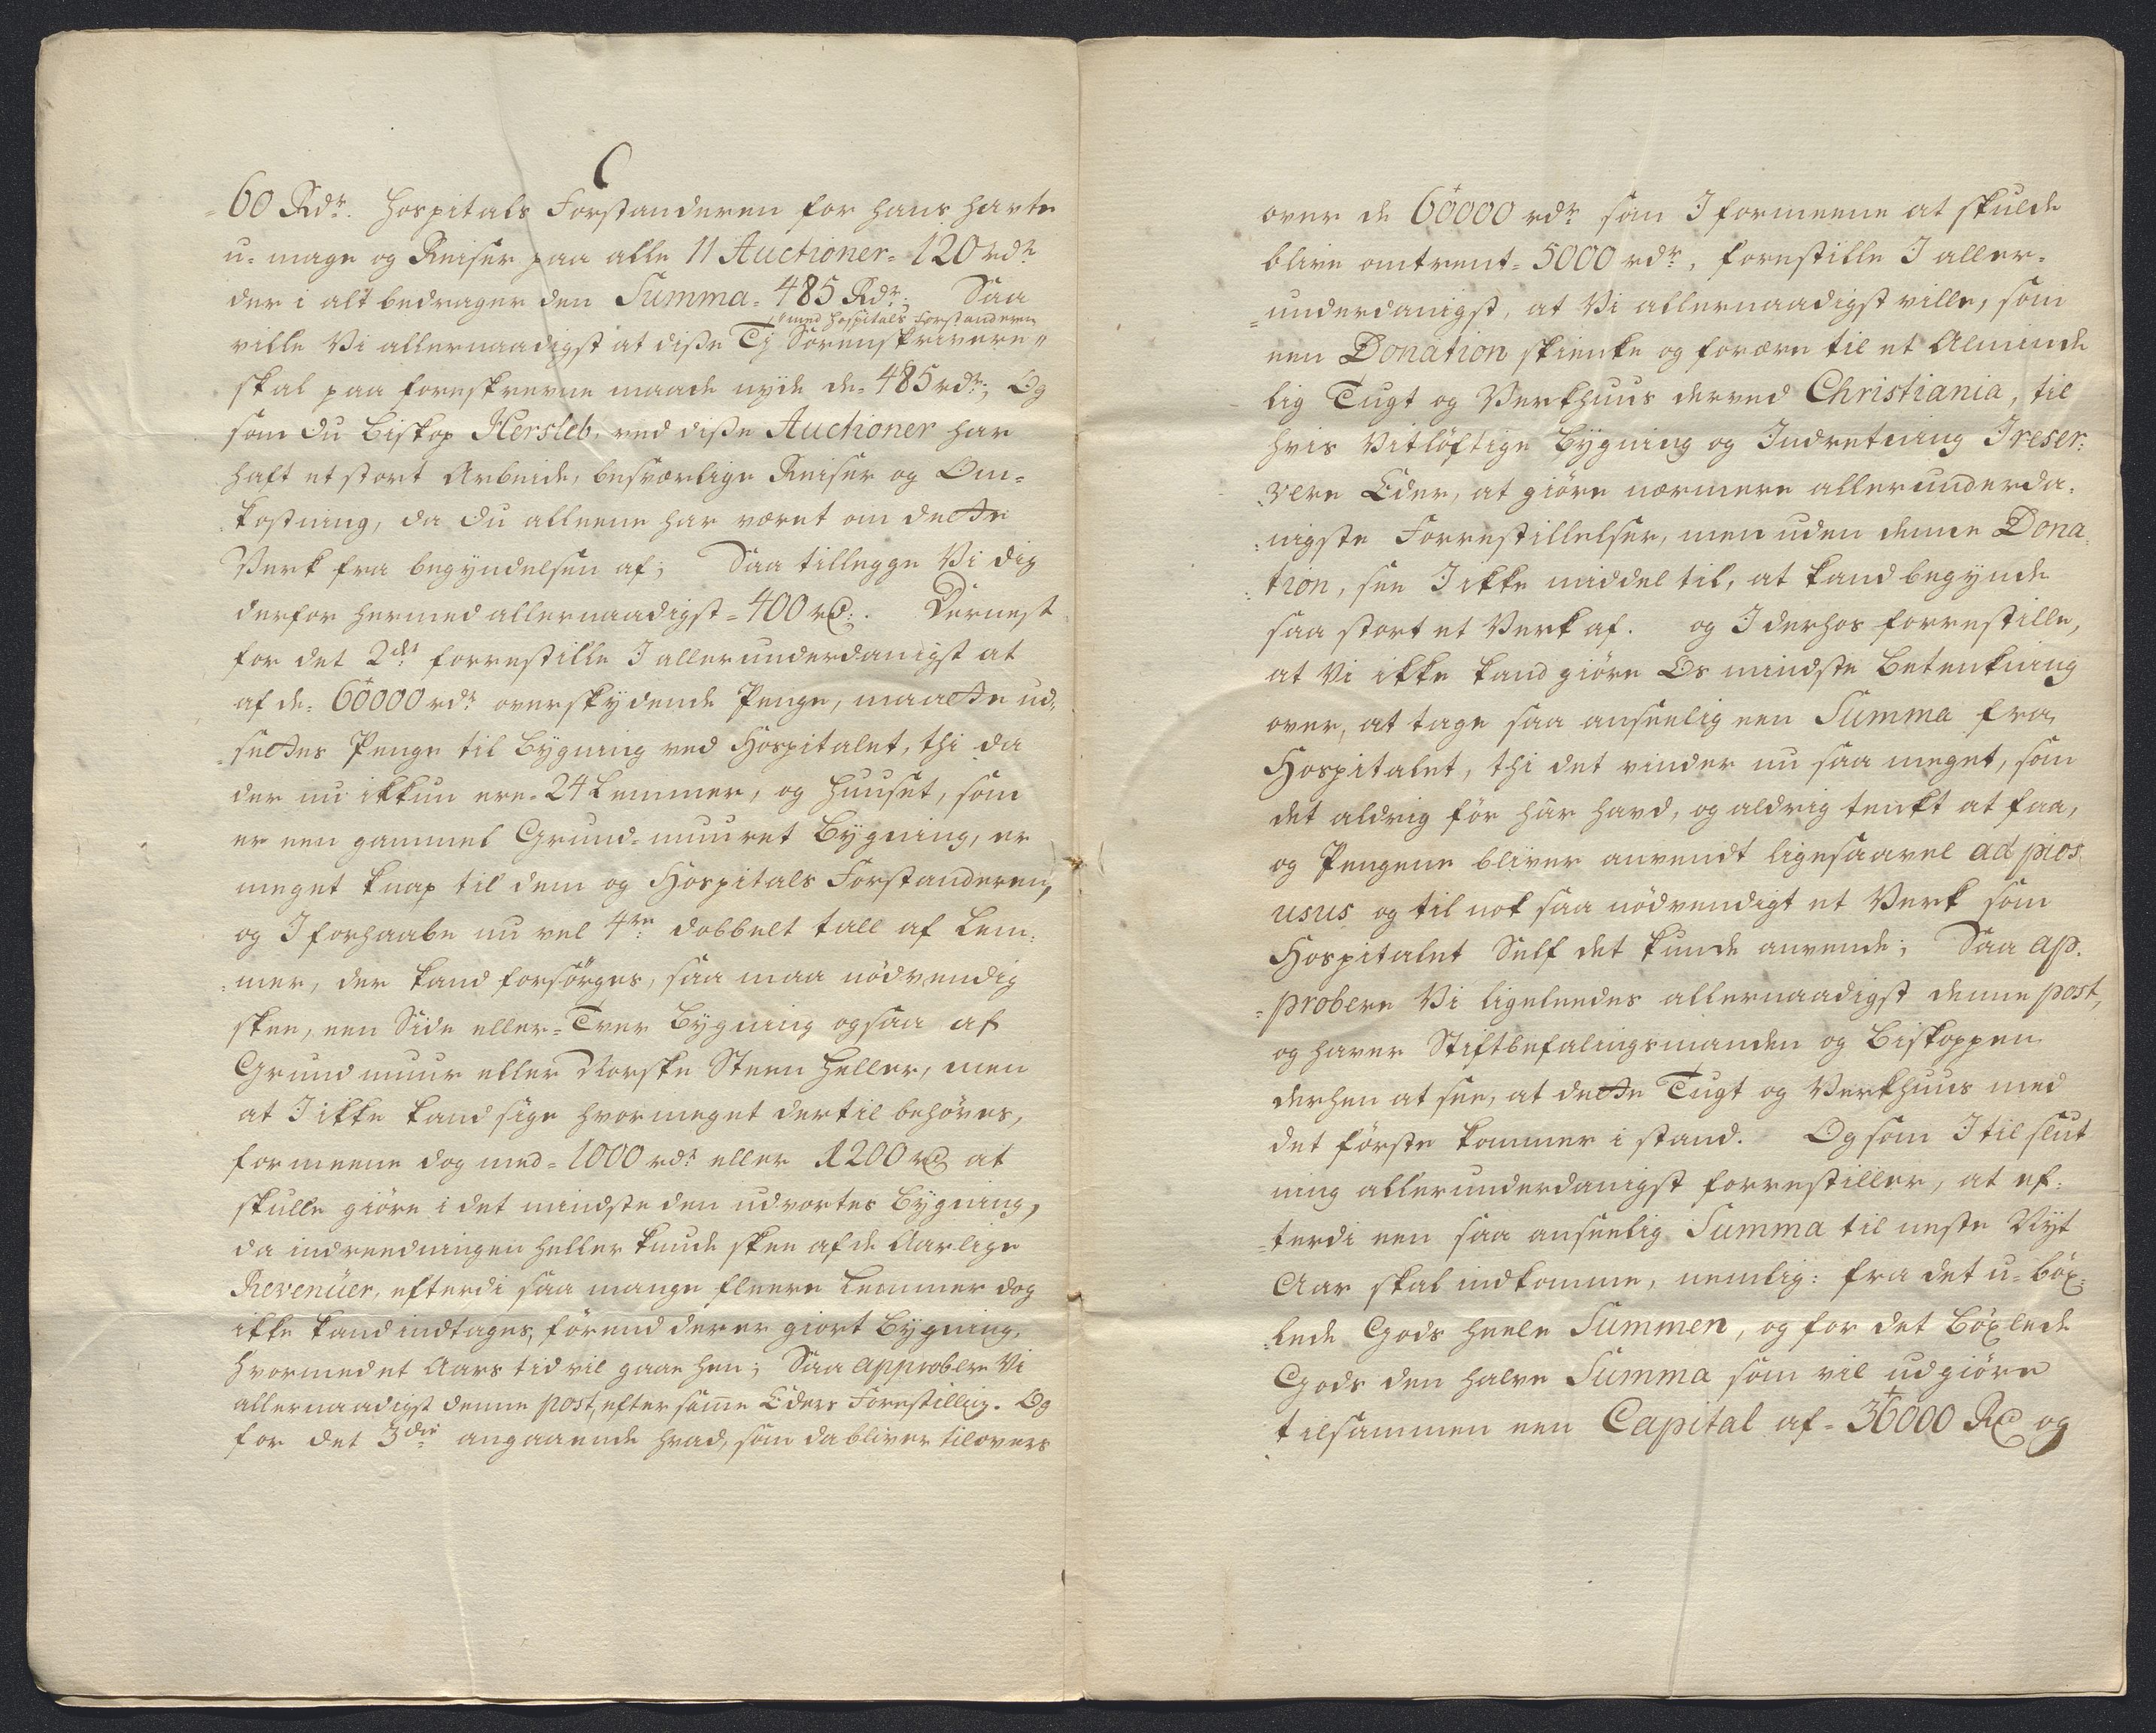 60 Rdr. Hospitals Forstanderen for hans havte
u-mage og Reiser paa alle 11 Auctioner = 120 rdr
der i alt bedrager den Summa = 485 Rdr; Saa
"med Hospitals Forstanderen
ville Vi allernaadigst at disse Tj Sorenskrivere "
skal paa foreskrevne maade nyde de = 485 rdr; Og
som du Biskop Hersleb, ved disse Auctioner har
haft et stort Arbeide, besværlige Reiser og Om=
kostning, da du alleene har været om dette
Verk fra begyndelsen af; Saa tillegge Vi dig
derfor hermed allernaadigst = 400 rd. Dernest
for det 2det forrestille I allerunderdanigst at
af de = 60000 rdr overskydende Penge, maatte ud=
settes Penge til Bygning ved Hospitalet, thi da
der nu ikkun ere = 24 Lemmer, og Huuset, som
er een gammel Grund=muuret Bygning, er
meget knap til dem og Hospitals Forstanderen,
og I forhaabe nu vel 4re dobbelt tall af Lem=
mer, der kand forsörges, saa maa nödvendig
skee, een Side eller = Tver Bygning ogsaa af
Grundmuur eller Norske Steen Heller, men
at I ikke kand sige hvormeget dertil behöves,
formeene dog med = 1000 rdr eller 1200 rd at
skulle giöre i det mindste den udvortes Bygning,
da indreedningen heller kunde skee af de Aarlige
Revenüer, efterdi saa mange fleere Lemmer dog
ikke kand indtages, förend der er giort Bygning,
hvormed et Aars tid vil gaae hen; Saa approbere Vi
allernaadigst denne post, efter samme Eders Forestilling. Og
for det 3die angaaende hvad, som da bliver tilovers
over de 60000 rdr som I formeene at skulde
blive omtrent = 5000 rdr, forestille I aller=
underdanigst, at Vi allernaadigst ville, som
een Donation skienke og forære til et Alminde
lig Tugt og Verkhuus derved Christiania, til
hvis Vitlöftige Bygning og Indretning I reser=
vere Eder, at giöre nærmere allerunderda=
nigste Forrestillelser, men uden denne Dona
tion, see I ikke middel til, at kand begynde
saa stort et Verk af. og I derhos forrestille,
at Vi ikke kand giöre Os mindste Betenkning
over, at tage saa anseelig een Summa fra
Hospitalet, thi det vinder nu saa meget, som
det aldrig för har havd, og aldrig tenkt at faa,
og Pengene bliver anvendt ligesaavel ad pios
usus og til nok saa nödvendigt et Verk som
Hospitalet Self det kunde anvende; Saa ap=
probere Vi ligeleedes allernaadigst denne post,
og haver Stiftbefalingsmanden og Biskoppen
derhen at see, at dette Tugt og Verkhuus med
det förste kommer i stand. Og som I til slut
ning allerunderdanigst forrestiller, at ef=
terdi een saa anseelig Summa til neste Nyt
Aar skal indkomme, nemlig: fra det u=böx=
lede Gods heele Summen, og for det Böxlede
Gods den halve Summa som vil udgiöre
tilsammen een Capital af = 36000 Rd og